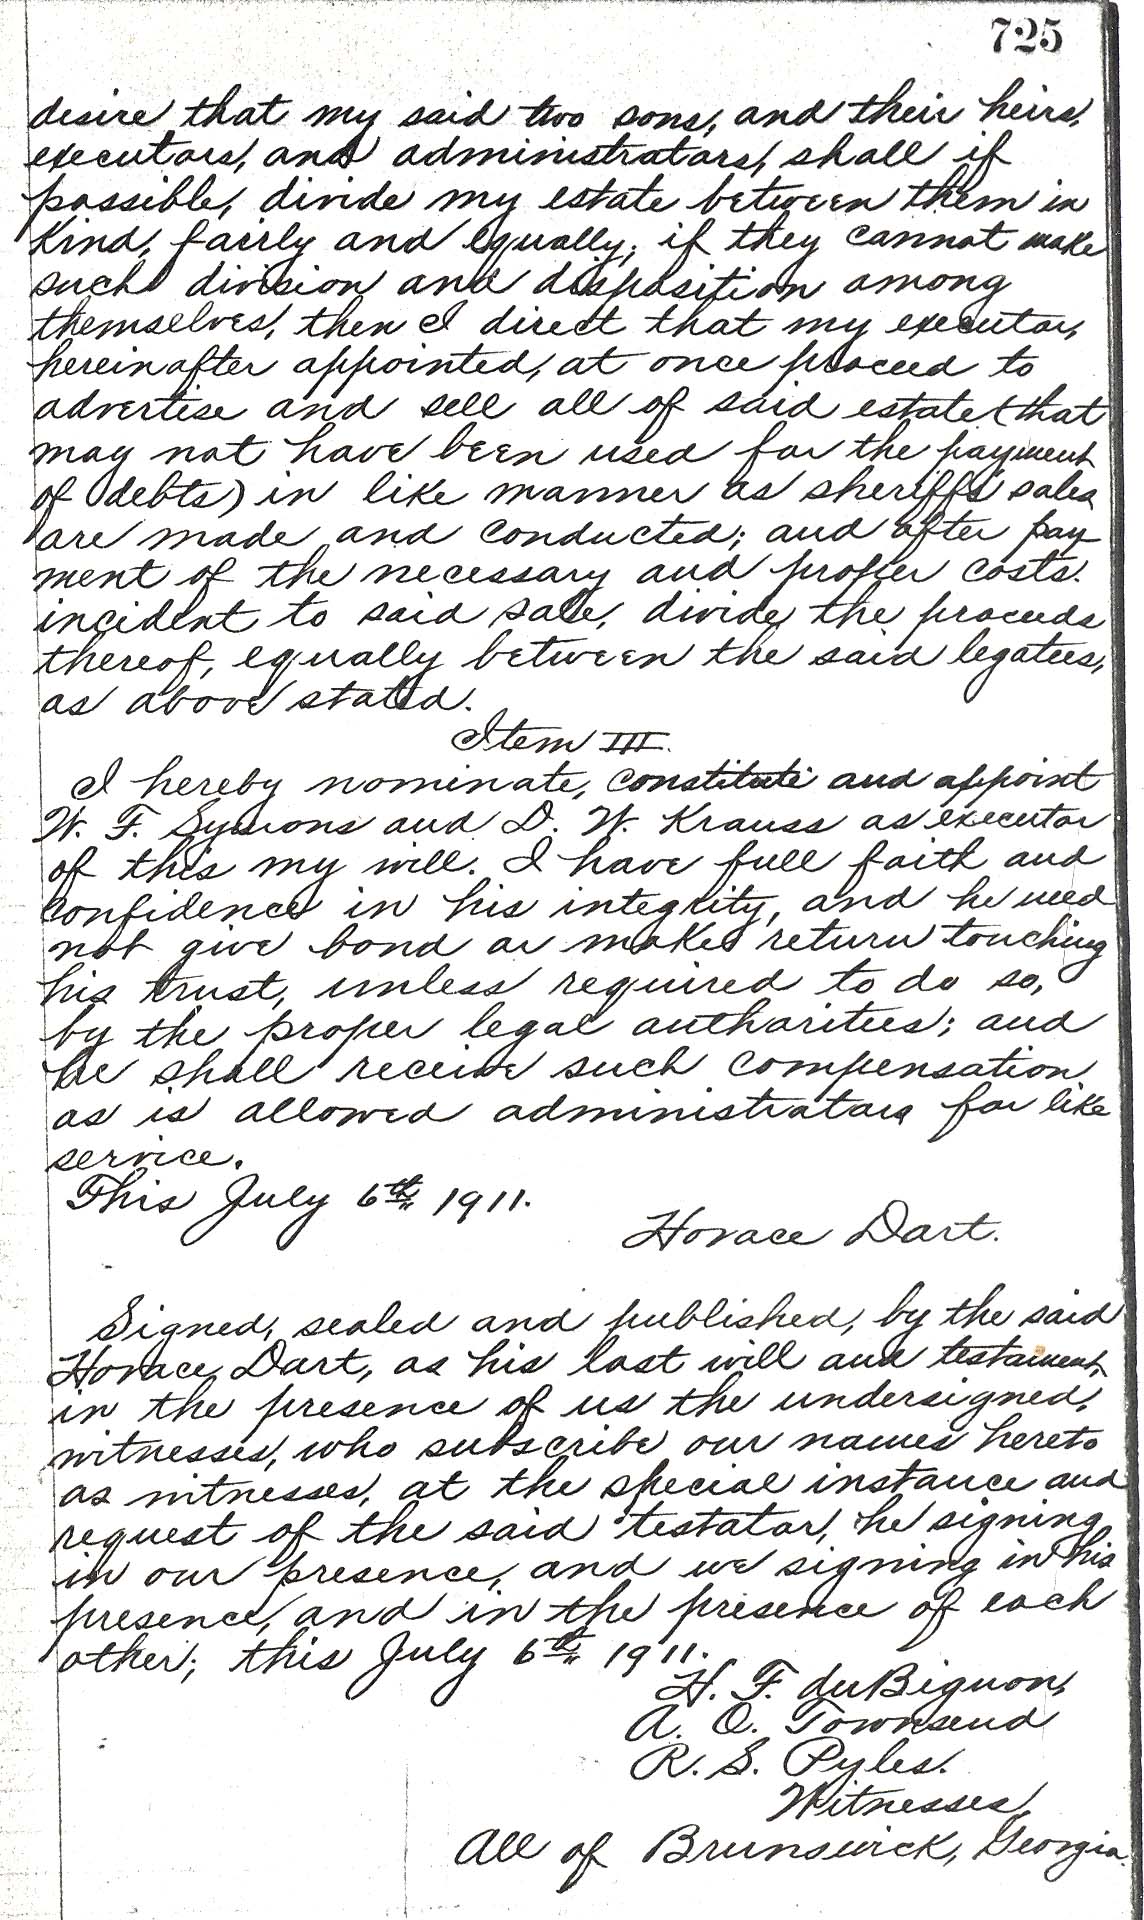 725
desire that my said two sons, and their heirs,
executors, and administrators, shall if
possible, divide my estate between them in
kind, fairly and equally; if they cannot make
such division and disposition among
themselves, then I direct that my executor,
hereinafter appointed, at once proceed to
advertise and sell all of said estate (that
may not have been used for the payment
of debts) in like manner as sheriffs sales
are made and conducted; and after pay
ment of the necessary and proper costs.
incident to said sale, divide the proceeds
thereof, equally between the said legatees,
as above stated.
Item III.
I hereby nominate, constitute and appoint
W. F. Symons and D. W. Krauss as executor
of this my will. I have full faith and
confidence in his integrity, and he need
not give bond or make return touching
his trust, unless required to do so,
by the proper legal authorities; and
he shall receive such compensation
as is allowed administrators for like
service.
This July 6th, 1911.
Horace Dart.
Signed, sealed and published, by the said
Horace Dart, as his last will and testament,
in the presence of us the undersigned,
witnesses, who subscribe our names hereto
as witnesses, at the special instance and
request of the said testator, he signing
in our presence, and we signing in his
presence, and in the presence of each
other; this July 6th, 1911.
H. F. duBignon,
A. O. Townsend
R. S. Pyles.
Witnesses,
All of Brunswick, Georgia.